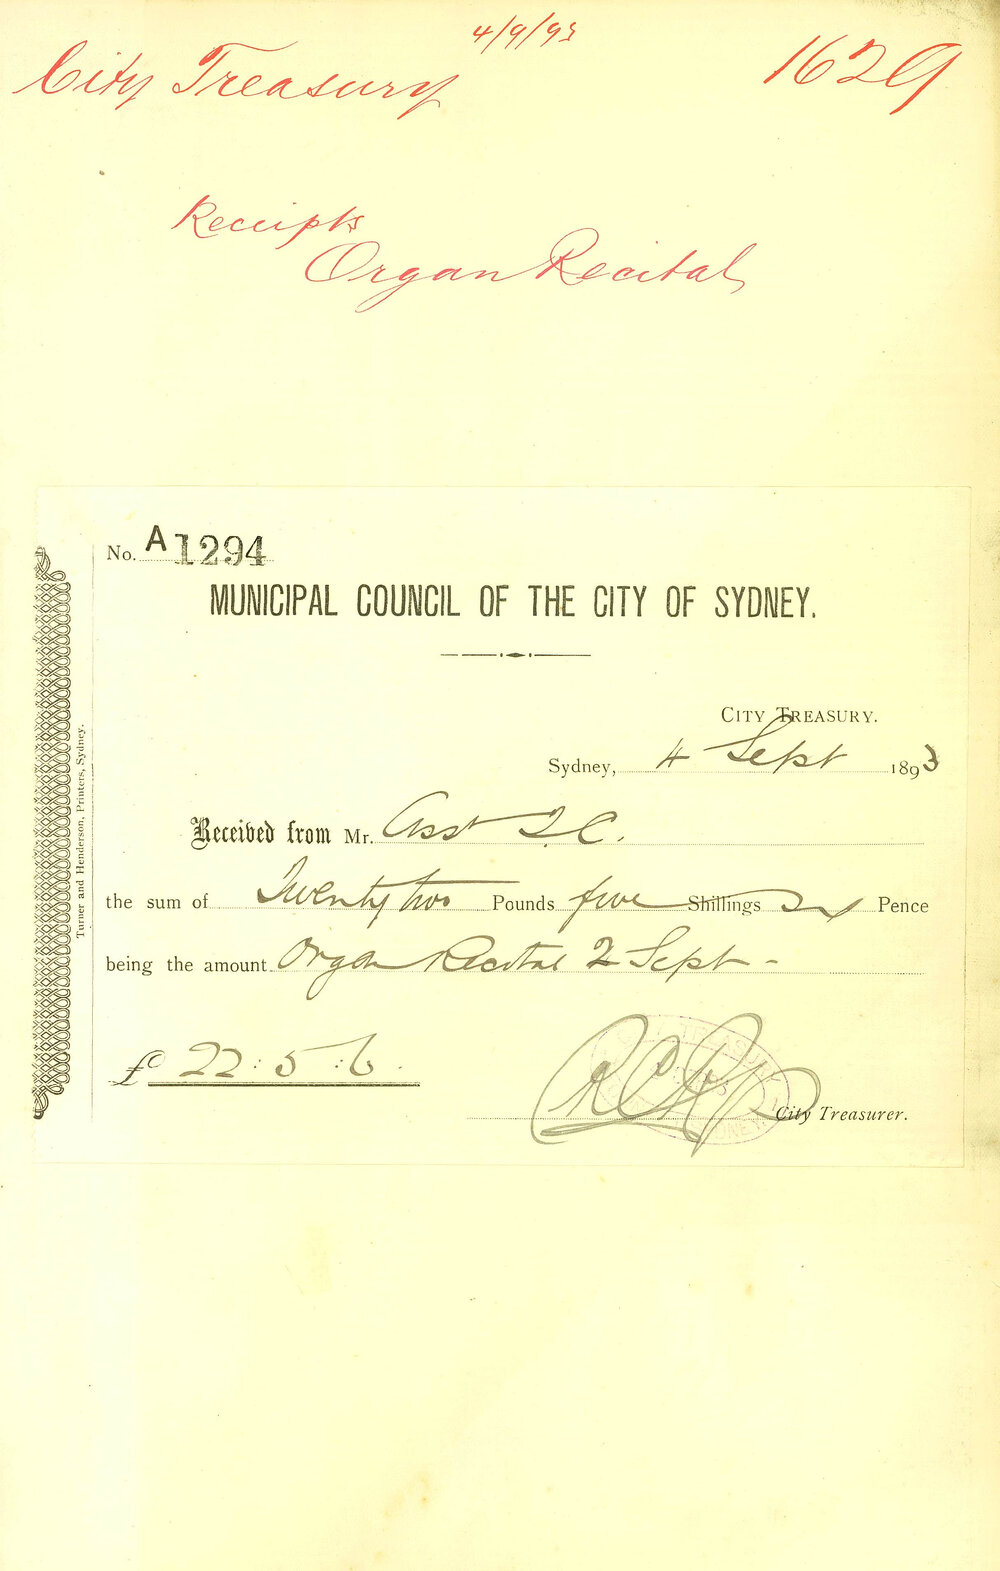 4/9/93
City Treasury 1629
Receipts
Organ Recital
No. A1294
MUNICIPAL COUNCIL OF THE CITY OF SYDNEY.
CITY TREASURY.
Sydney, 4 Sept 1893
Received from Mr. Asst T.C.
the sum of Twenty two Pounds five Shillings Six Pence
being the amount Organ Recital 2 Sept -
£ 22:5:6.
City Treasurer.
Turner and Henderson, Printers, Sydney.